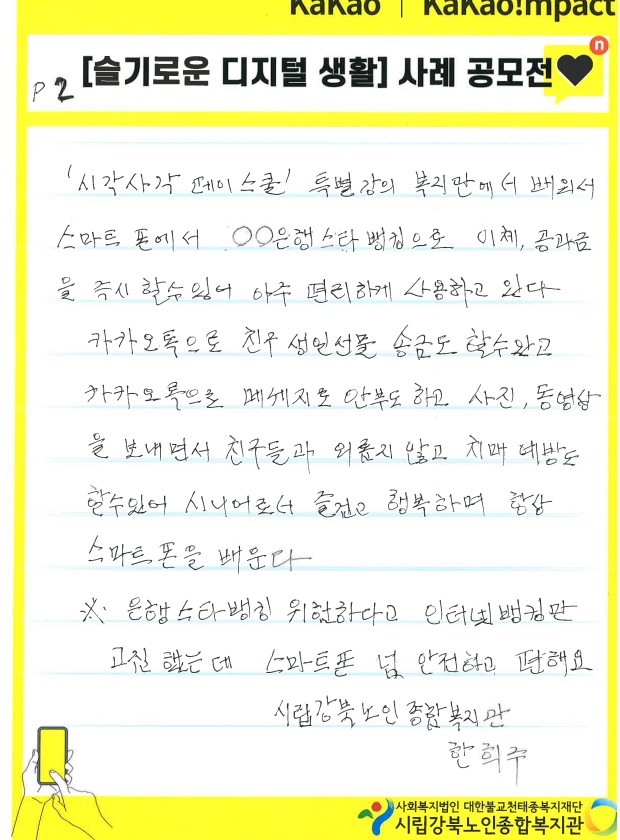 kakao | kakao!mpact
P 2 [슬기로운 디지털 생활] 사례 공모전
n
'시각사각 페이스쿨' 특별강의 복지관에서 배워서
스마트 폰에서 ○○은행 스타 뱅킹으로 이체, 공과금
을 즉시 할수있어 아주 편리하게 사용하고 있다
카카오톡으로 친구 생일선물 송금도 할수있고
카카오톡으로 메세지로 안부도 하고 사진, 동영상
을 보내면서 친구들과 외롭지 않고 치매 예방도
할수있어 시니어로서 즐겁고 행복하며 항상
스마트폰을 배운다
※ 은행스타뱅킹 위험하다고 인터넷뱅킹만
고집 했는데 스마트폰 넘 안전하고 편해요
시립강북노인종합복지관
한희주
사회복지법인 대한불교천태종복지재단
시립강북노인종합복지관